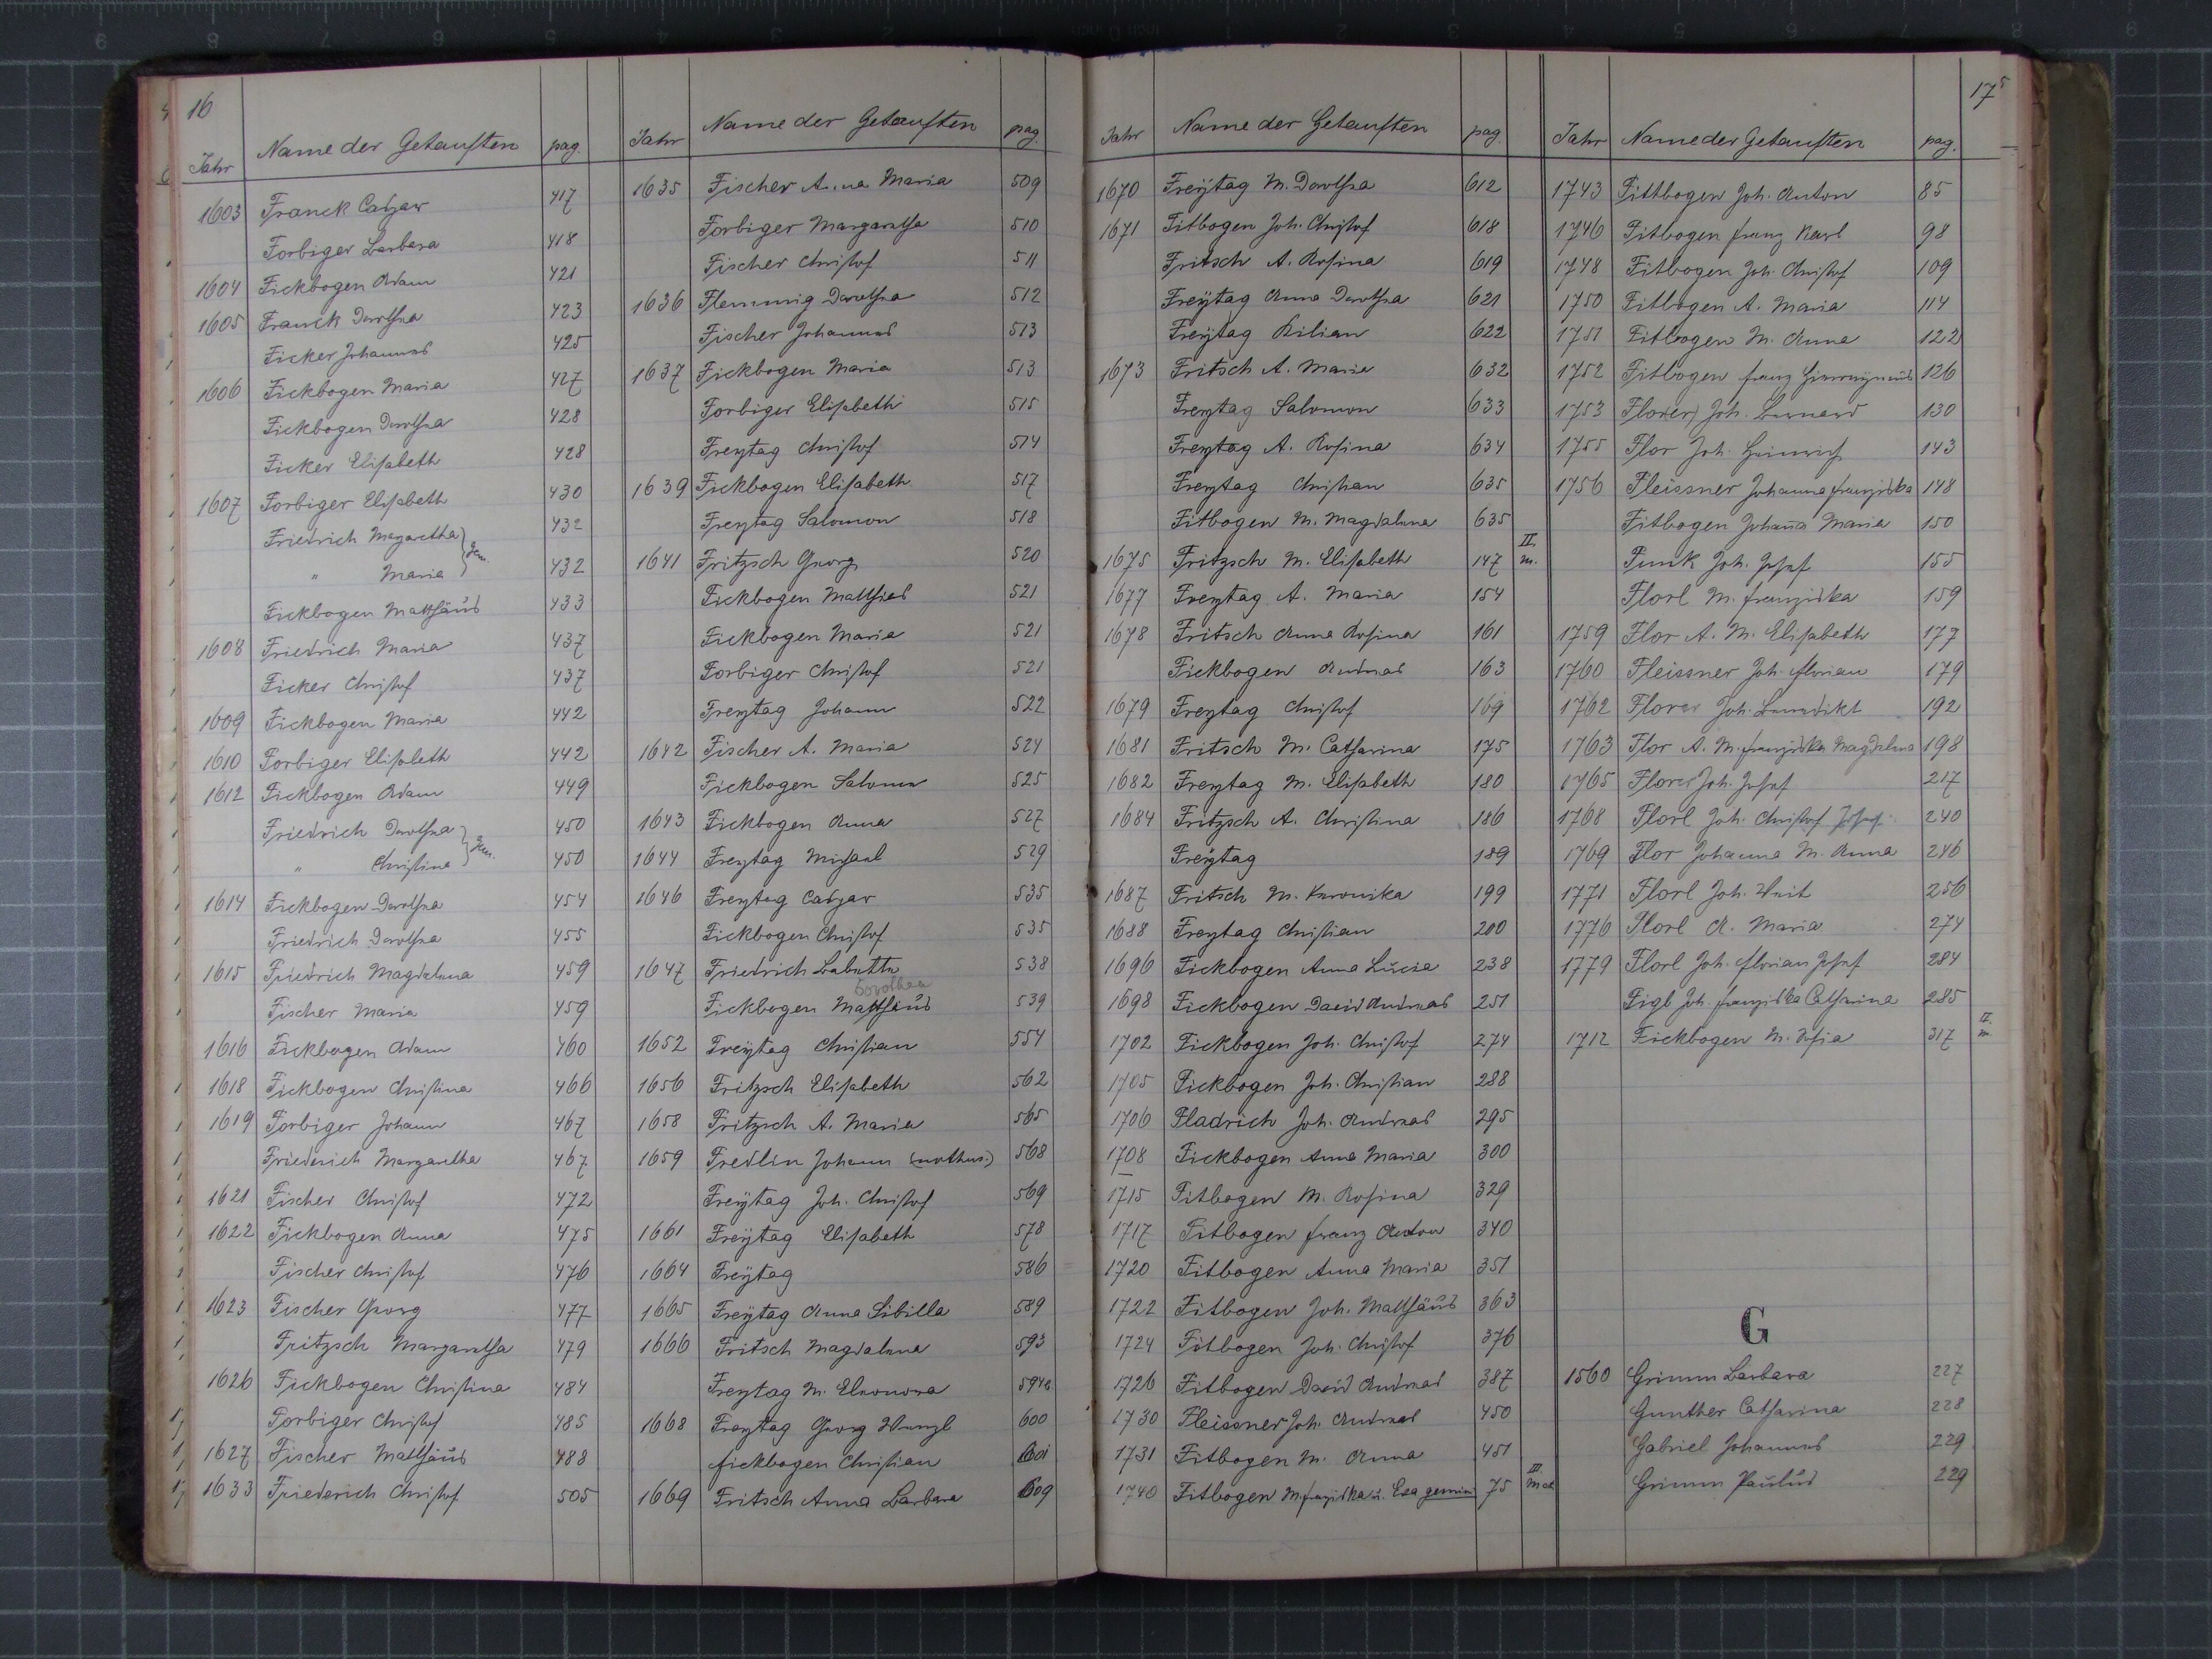 16
Jahr Name der Getauften pag.
1603 Franck Caspar 417
Forbiger Barbara 418
1604 Fickbogen Adam 421
1605 Franck Dorothea 423
Ficker Johannes 425
1606 Fickbogen Maria 427
Fickbogen Dorothea 428
Ficker Elisabeth 428
1607 Forbiger Elisabeth 430
Friedrich Margaretha 432
" Maria } gem. 432
Fickbogen Matthäus 433
1608 Friedrich Maria 437
Ficker Christof 437
1609 Fickbogen Maria 442
1610 Forbiger Elisabeth 442
1612 Fickbogen Adam 449
Friedrich Dorothea 450
" Christina } gem. 450
1614 Fickbogen Dorothea 454
Friedrich Dorothea 455
1615 Friedrich Magdalena 459
Fischer Maria 459
1616 Fickbogen Adam 460
1618 Fickbogen Christina 466
1619 Forbiger Johann 467
Friederich Margaretha 467
1621 Fischer Christof 472
1622 Fickbogen Anna 475
Fischer Christof 476
1623 Fischer Georg 477
Fritzsch Margaretha 479
1626 Fickbogen Christina 484
Forbiger Christof 485
1627 Fischer Matthäus 488
1633 Friederich Christof 505
Jahr Name der Getauften pag.
1635 Fischer Anna Maria 509
Forbiger Margaretha 510
Fischer Christof 511
1636 Flemmig Dorothea 512
Fischer Johannes 513
1637 Fickbogen Maria 513
Forbiger Elisabeth 515
Freytag Christof 514
1639 Fickbogen Elisabeth 517
Freytag Salomon 518
1641 Fritzsch Georg 520
Fickbogen Matthias 521
Fickbogen Maria 521
Forbiger Christof 521
Freytag Johann 522
1642 Fischer A. Maria 524
Fickbogen Salomon 525
1643 Fickbogen Anna 527
1644 Freytag Michael 529
1646 Freytag Caspar 535
Fickbogen Christof 535
1647 Friedrich 538
Dorothea
Fickbogen Matthäus 539
1652 Freÿtag Christian 554
1656 Fritzsch Elisabeth 562
1658 Fritzsch A. Maria 565
1659 Fredlin Johann (nothus.) 568
Freÿtag Joh. Christof 569
1661 Freÿtag Elisabeth 578
1664 Freÿtag 586
1665 Freÿtag Anna Sibilla 589
1666 Fritsch Magdalena 593
Freytag M. Eleonora 594a
1668 Freytag Georg Wenzl 600
fickbogen Christian 601
1669 Fritsch Anna Barbara 609
Jahr Name der Getauften pag.
1670 Freÿtag M. Dorothea 612
1671 Fitbogen Joh. Christof 618
Fritsch A. Rosina 619
Freÿtag Anna Dorothea 621
Freÿtag Kilian 622
1673 Fritsch A. Maria 632
Freytag Salomon 633
Freytag A. Rosina 634
Freytag Christian 635
Fitbogen M. Magdalena 635
1675 Fritzsch M. Elisabeth 147 II. m.
1677 Freytag A. Maria 154
1678 Fritsch Anna Rosina 161
Fickbogen Andreas 163
1679 Freytag Christof 169
1681 Fritsch M. Catharina 175
1682 Freytag M. Elisabeth 180
1684 Fritzsch A. Christina 186
Freÿtag 189
1687 Fritsch M. Veronika 199
1688 Freytag Christian 200
1696 Fickbogen Anna Lucia 238
1698 Fickbogen David Andreas 251
1702 Fickbogen Joh. Christof 274
1705 Fickbogen Joh. Christian 288
1706 Fladrich Joh. Andreas 295
1708 Fickbogen Anna Maria 300
1715 Fitbogen M. Rosina 329
1717 Fitbogen franz Anton 340
1720 Fitbogen Anna Maria 351
1722 Fitbogen Joh. Matthäus 363
1724 Fitbogen Joh. Christof 376
1726 Fitbogen David Andreas 387
1730 Fleissner Joh. Andreas 450
1731 Fitbogen M. Anna 451
1740 Fitbogen M. franziska u. Eva gemini 75 III.
17
Jahr Name der Getauften pag.
1743 Fittbogen Joh. Anton 85
1746 Fitbogen franz Karl 98
1748 Fitbogen Joh. Christof 109
1750 Fitbogen A. Maria 114
1751 Fitbogen M. Anna 122
1752 Fitbogen franz Hieronymus 126
1753 Florer Joh. Bernard 130
1755 Flor Joh. Heinrich 143
1756 Fleissner Johanna franziska 148
Fitbogen Johana Maria 150
Funk Joh. Josef 155
Florl M. franziska 159
1759 Flor A. M. Elisabeth 177
1760 Fleissner Joh. florian 179
1762 Florer Joh. Benedikt 192
1763 Flor A. M. franziska Magdalena 198
1765 Florer Joh. Josef 217
1768 Florl Joh. Christof Josef 240
1769 Flor Johanna M. Anna 246
1771 Florl Joh. Veit 256
1776 Florl A. Maria 274
1779 Florl Joh. florian Josef 284
Figl Joh. franziska Catharina 285
1712 Fickbogen M. Sofia 317 II. m
G
1560 Grimm Barbara 227
Gunther Catharina 228
Gabriel Johannes 229
Grimm Paulus 229